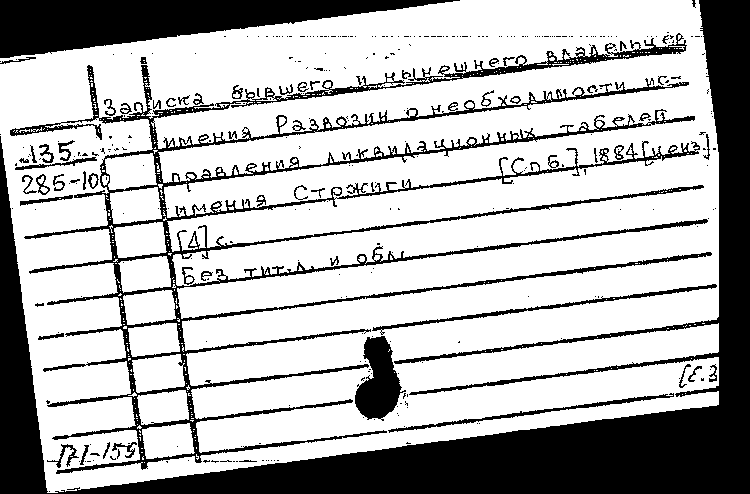 Записка бывшего и нынешнего владельцев
имения Развозин о необходимости ис-
135
правления ликвидационных табелей
285-100
имения Стржиги. [Спб.], 1884 [ценз].
[4] с.
Без тит.л. и обл.
[Е.З
П71-159